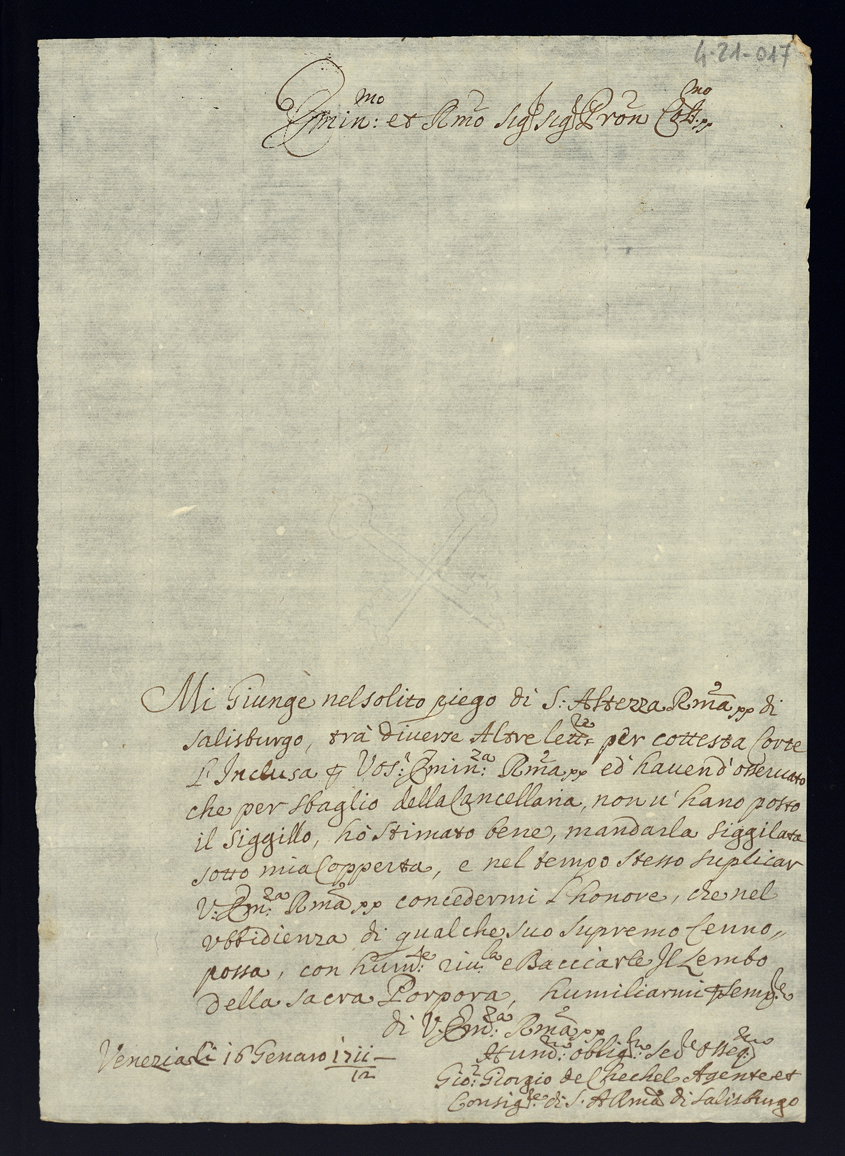 4-21-017
Emin:mo et Rmo Sig: Sig: Pron Col:mo pp
Mi Giunge nel solito piego di S: Altezza Rma pp di
Salisburgo, trà diverse Altre lettre per cottesta Corte
L'Inclusa p Vos:a Emin:za Rma pp ed' havend' osservato
che per sbaglio della Cancellaria, non v' hano posto
il Siggillo, hò stimato bene, mandarla Siggilata
sotto mia Copperta, e nel tempo stesso Suplicar
V: Em:za Rma pp concedermi l'honore, che nel
Vbbidienza di qualche suo supremo Cenno,,
possa, con hum:te riu:la e Bacciarle Il Lembo
della sacra Porpora, humiliarmi p semp:e
di V: Em:za Rma pp
Venezia li 16 Genaro 1711/12
oblig:mo
Gio: Giorgio de Chechel Agente et
Consig:re di S: A Rma di Salisburgo